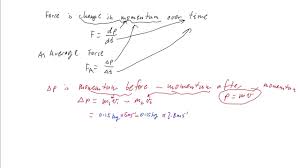 Force is change in momentum over time
F = dp/dt
As Average Force
F_A = Δp/Δt
Δp is momentum before - momentum after, momentum
p = mv
Δp = m₁v₁ - m₂v₂
= 0.15kg